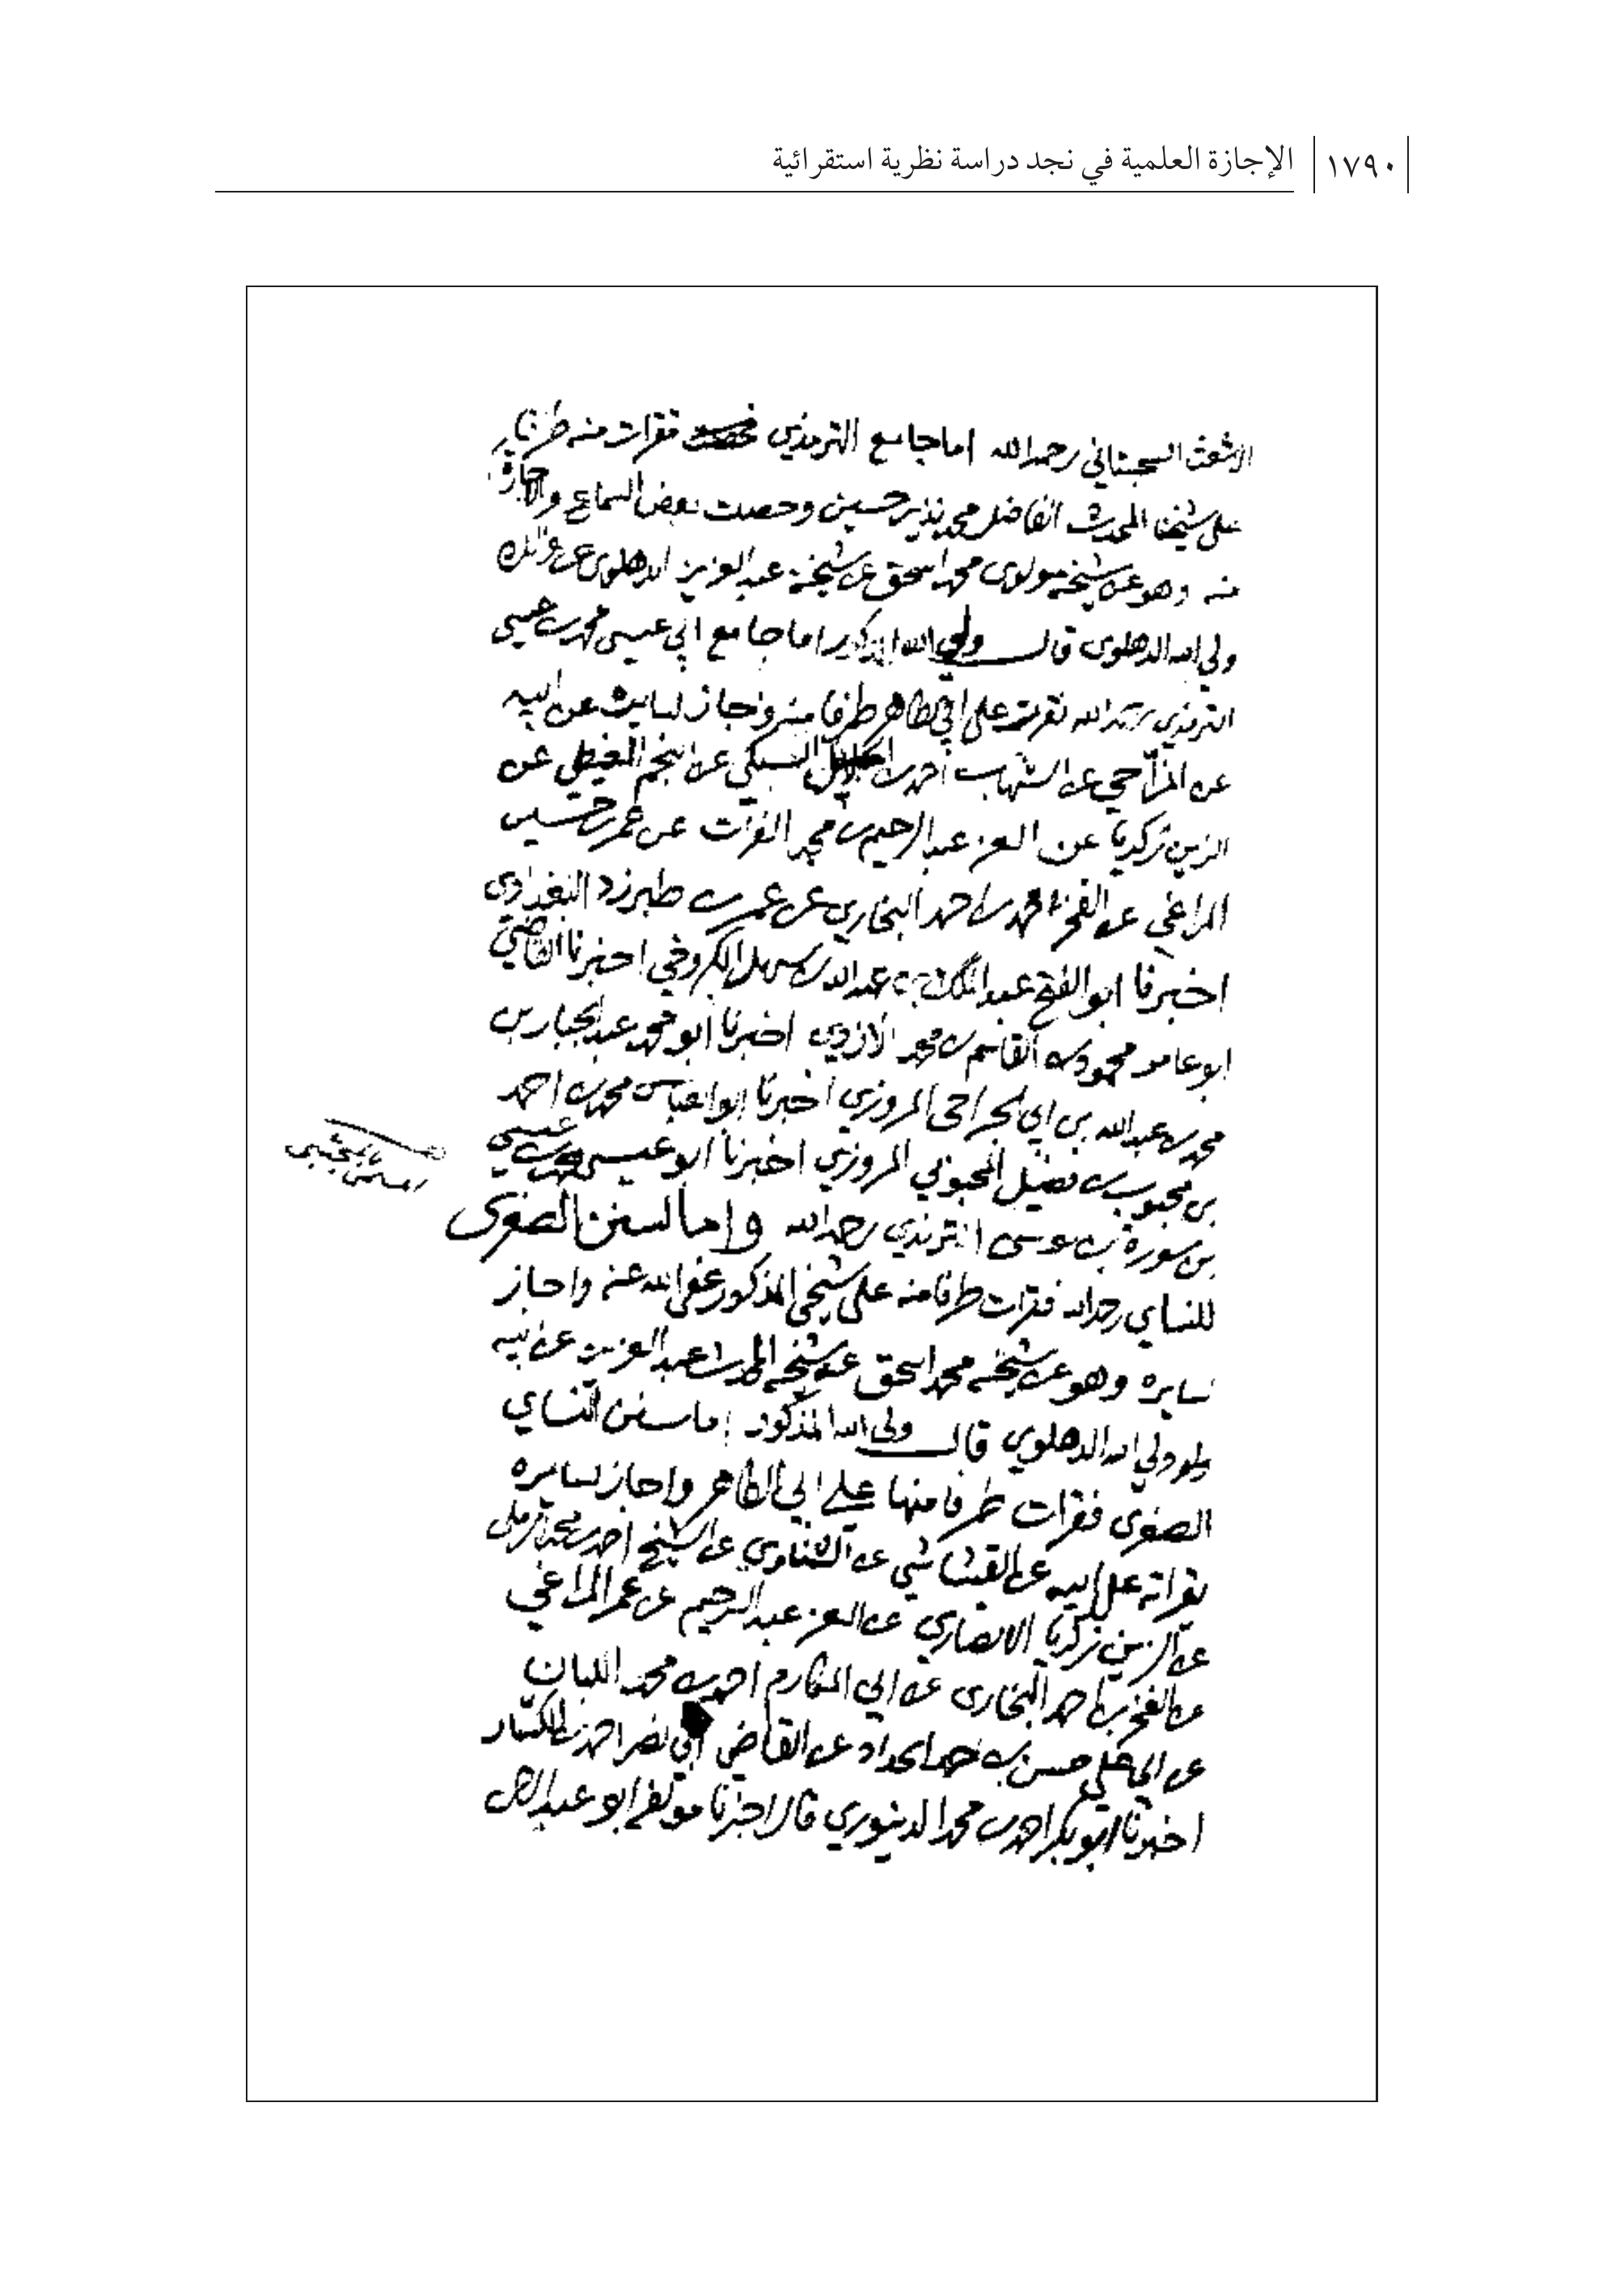 ١٧٩٠ الإجازة العلمية في نجد دراسة نظرية استقرائية
الاشعث السجستاني رحمه الله اما جامع الترمذي فقرات منه طرفا
على شيخنا المحدث الفاضل محمد نذير حسين وحصلت بعض السماع والاجازة
منه وهو عن شيخه مولوى محمد اسحق عن شيخه عبد العزيز الدهلوى عن والده
ولي الله الدهلوى قال ولي الله المذكور اما جامع ابي عيسى محمد بن عيسى
الترمذي رحمه الله فقرات على ابي طاهر طرفا منه واجاز لسايره عن ابيه
عن المزاحي عن الشهاب احمد بن السبكي عن النجم الغيطي عن
الزين زكريا عن العز عبد الرحيم بن محمد الفرات عن عمر بن حسين
المراغي عن الفخر بن احمد البخاري عن عمر بن طبرزد البغدادى
اخبرنا ابو الفتح عبد الملك بن عبد الله بن سهل الكروخي اخبرنا القاضي
ابو عامر محمود بن القاسم بن محمد الازدي اخبرنا ابو محمد عبد الجبار بن
محمد بن عبد الله بن ابي الجراحى المروزي اخبرنا ابو العباس محمد بن احمد
بن محبوب بن فضيل المحبوبي المروزي اخبرنا ابو عيسى محمد بن عيسى
بن سورة بن موسى الترمذي رحمه الله واما السنن الصغرى
للنساي رحمه الله فقرات طرفا منه على شيخي المذكور عفى الله عنه واجاز
سايره وهو عن شيخه محمد اسحق عن شيخه المحدث عبد العزيز عن ابيه
ولي الله الدهلوي قال ولى الله المذكور اما سنن النساي
الصغرى فقرات طرفا منها على ابي الطاهر واجاز لسايره
بقراته على ابيه عن القشاشي عن الشناوي عن الشيخ احمد بن محمد الرملى
عن الزين زكريا الانصاري عن العز عبد الرحيم عن عمر المراغي
عن الفخر بن احمد البخارى عن ابي المكارم احمد بن محمد اللبان
عن ابي علي حسن بن احمد الحداد عن القاضي ابي نصر احمد بن الكسار
اخبرنا ابو بكر احمد بن محمد الدينوري قال اخبرنا مولفه ابو عبد الرحمن